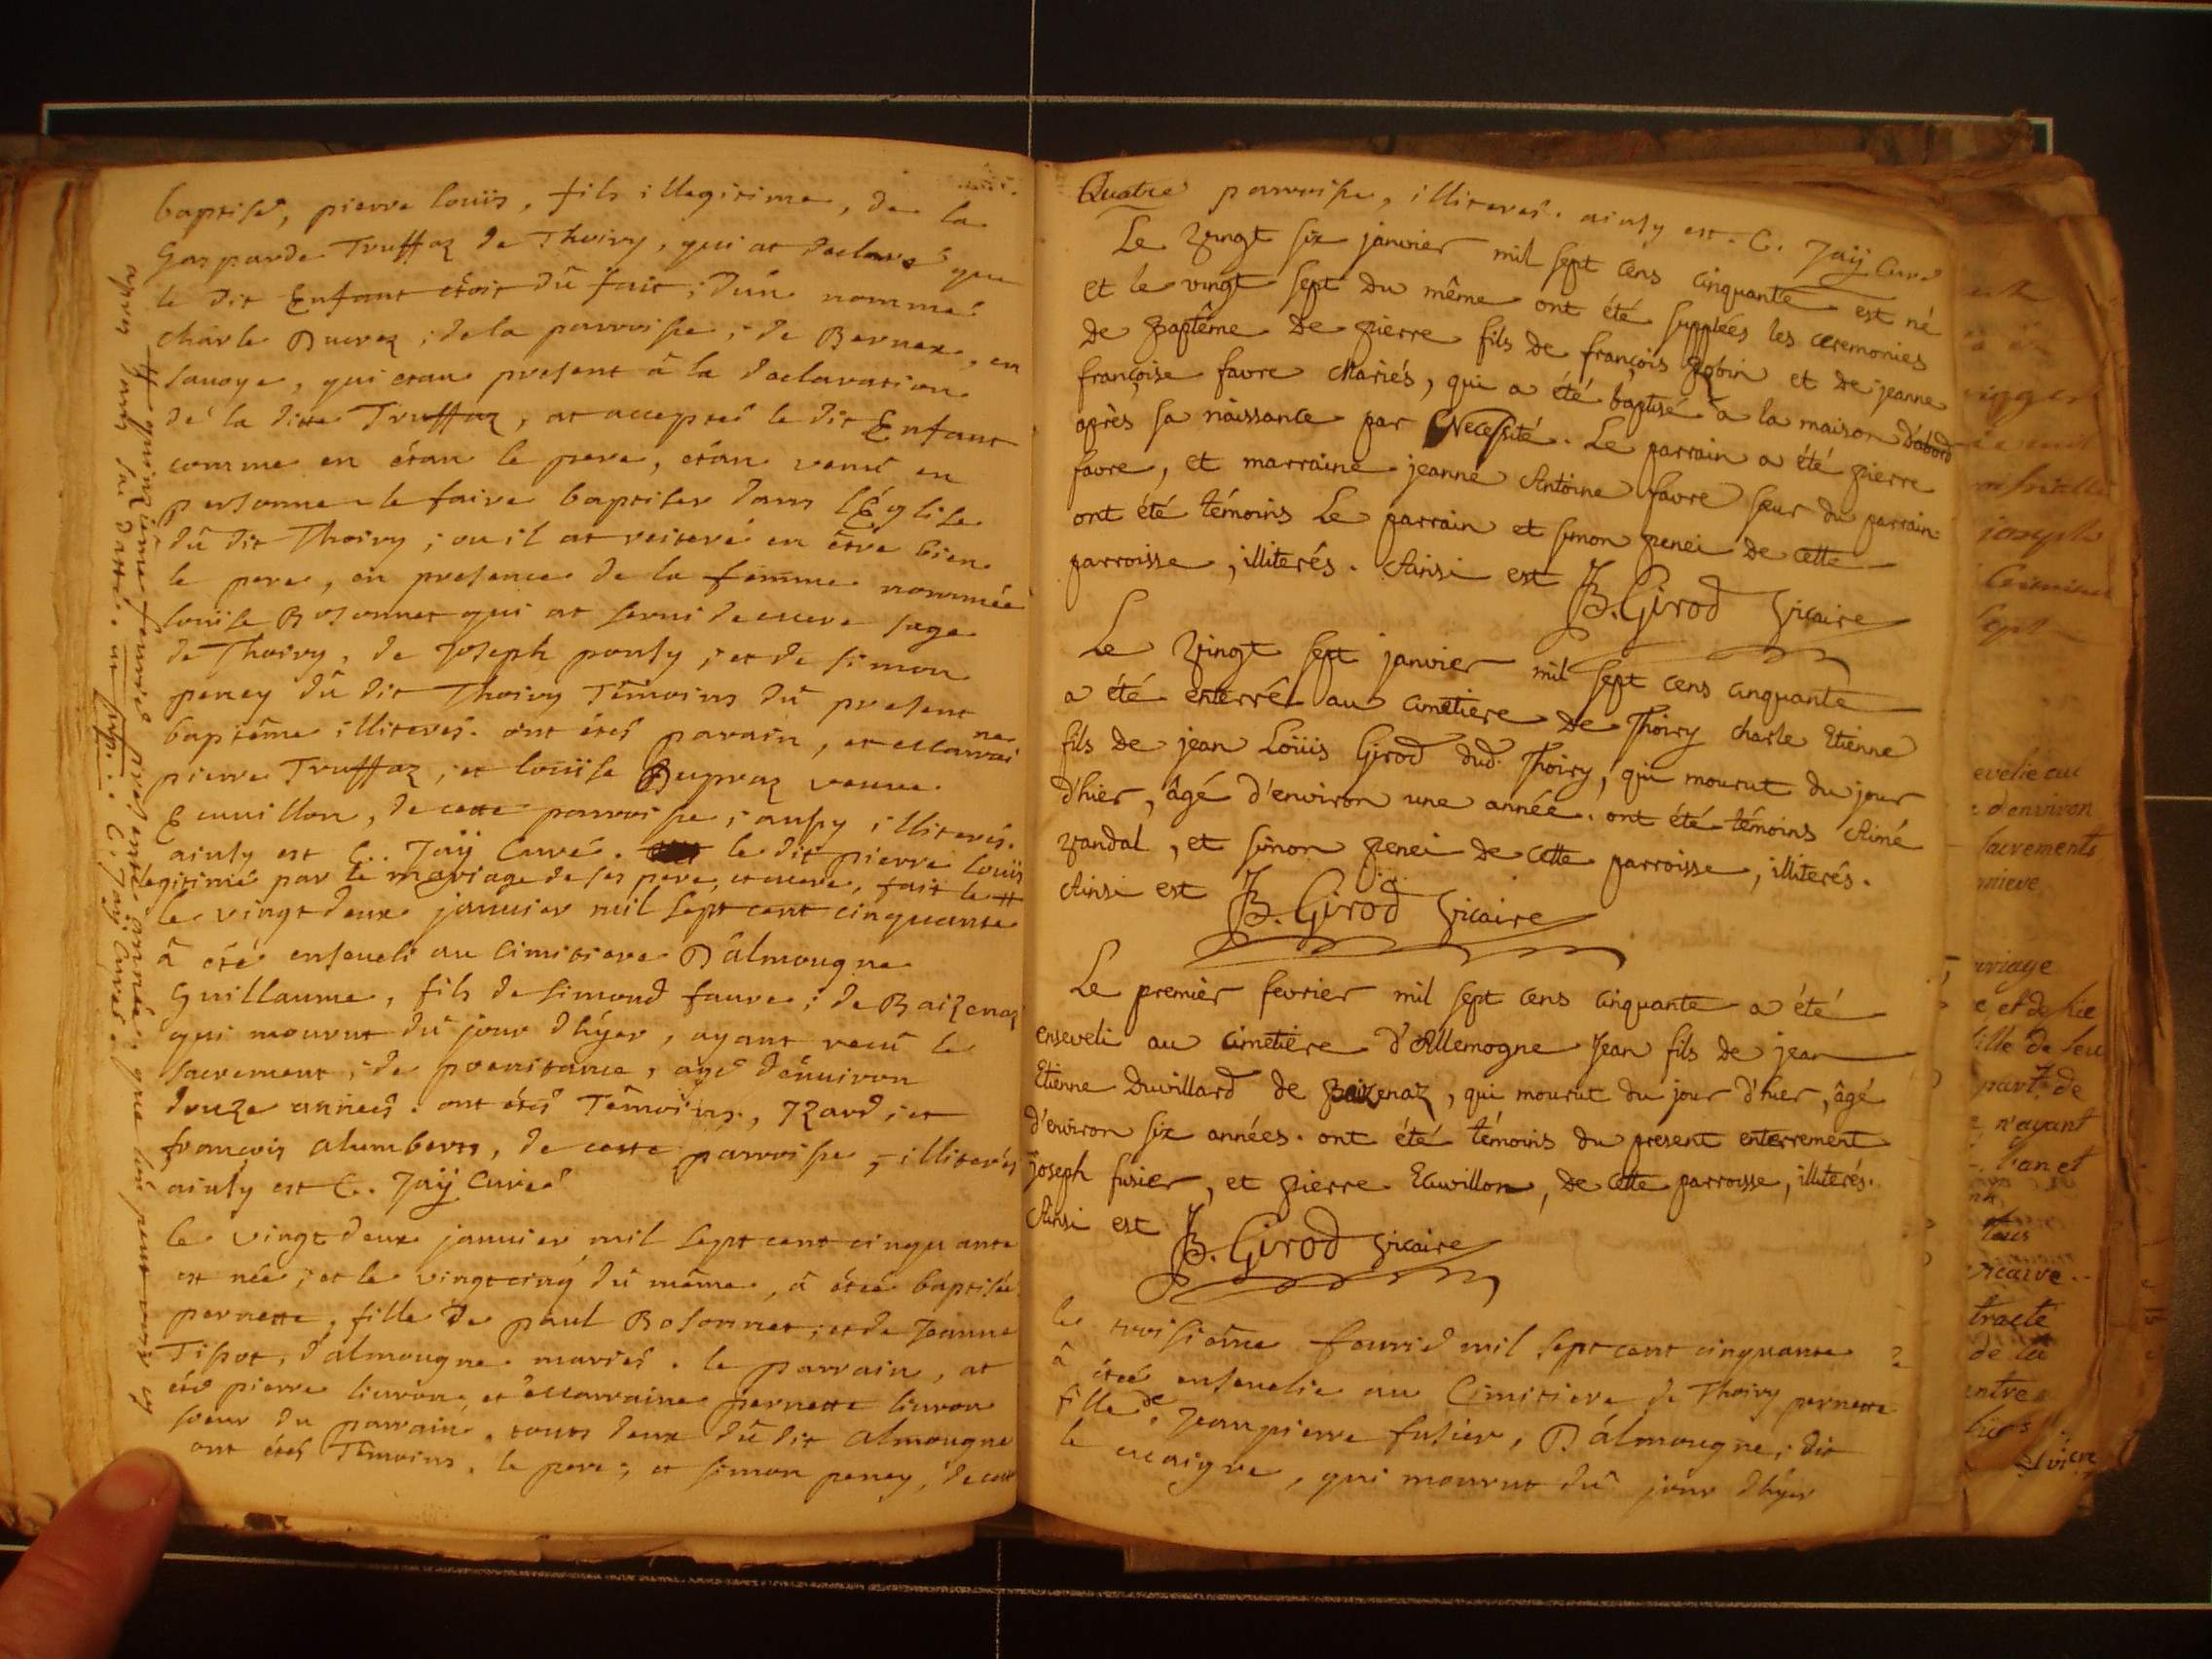 baptisé, pierre louïs, fils illegitime, de la
Gasparde Truffaz de Thoiry, qui at declaré que
le dit Enfant étoit dû fait; d'ün nommé
charle Ducrez; de la parroisse; de Bernex, en
Savoye, qui etan present â la declaration
dé la ditte Truffaz, at accepté le dit Enfant
comme en étan le pere, étan venü en
personne le faire baptiser dans l'Église
dû dit Thoiry; ou il at reiteré en être bien
le pere, en presence de la femme nommée
louïse Bosonnet qui at servi de mere sage
de Thoiry, de Joseph pouly; et de simon
peney dû dit Thoiry Têmoins dû present
baptême illiterés. ont étés parain, et marrai
ne
pierre Truffaz; et louïse Dupraz veuve
Ecuvillon, de cette parroisse; aussy illiterés.
ainsy est C. Jaÿ Curé. le dit pierre louïs
legitimé par le mariage de ses pere, et mere, fait le #
le vingt deux janvier mil sept cent cinquante
â été enseveli au Cimitiere D'âlmougne
Guillaume, fils de simond favre; de Baizenaz
qui mourut dû jour d'hÿer, ayant recû le
sacrement; de poenitance, agé d'énviron
douze années. ont étés Têmoins, Izard; et
françois alumbert, de cette parroisse, illiterés
ainsy est C. Jaÿ Curé
le vingt deux janvier mil sept cent cinquante
est née; et le vingtcinq dû même, â étéé baptisée
pernette, fille de paul Bosonnet; et de Jeanne
Tissot, d'almougne mariés. le parrain, at
été pierre livron, et marraine pernette livron
soeur du parrain, touts deux dû dit almougne
ont étés Têmoins, le pere; et simon peney, de cette
# quinziême fevrier presente année que l'on peut voir cy
après sous sa datte. C. Jaÿ Curé
Quatre parroisse, illiterés. ainsy est. C. Jaÿ Curé
Le vingt six janvier mil sept cens cinquante est né
et le vingt sept du même ont été supplées les ceremonies
de Baptême de pierre fils de françois Robin et de jeanne
françoise favre Mariés, qui a été baptisé à la maison d'abord
après sa nàissance par Necessité. Le parrain a été pierre
favre, et marraine jeanne Antoine favre sœur du parrain
ont été témoins Le parrain et simon penei de cette
parroisse, illiterés. Ainsi est JB. Girod Vicaire
Le vingt sept janvier mil sept cens cinquante
a été enterré au cimetiere de Thoiry charle Etienne
fils de jean Loüis Girod dud. Thoiry, qui mourut du jour
d'hier, âgé d'environ une année. ont été témoins Aimé
vandal, et simon penei de cette parroisse, illiterés.
Ainsi est JB. Girod Vicaire
Le premièr fevrier mil sept cens cinquante a été
enseveli au cimetière d'Allemogne Jean fils de jean
Etienne Duvillard de Baizenaz, qui mourut du jour d'hier, âgé
d'environ six années. ont été témoins du present enterrement
joseph fusier, et pierre Ecuvillon, de cette parroisse, illiterés.
Ainsi est JB. Girod Vicaire
le troisiême fevrié mil sept cent cinquante
â étéé ensevelie au Cimitiere de Thoiry pernette
fille de Jean pierre fusier, D'âlmougne; dit
le maigre, qui mourut dû jour d'hÿer
joseph
evelie au
d'environ
sacrements
ariage
et de
fille de feu
part de
n'ayant
vicaire
tracte
de la
entre